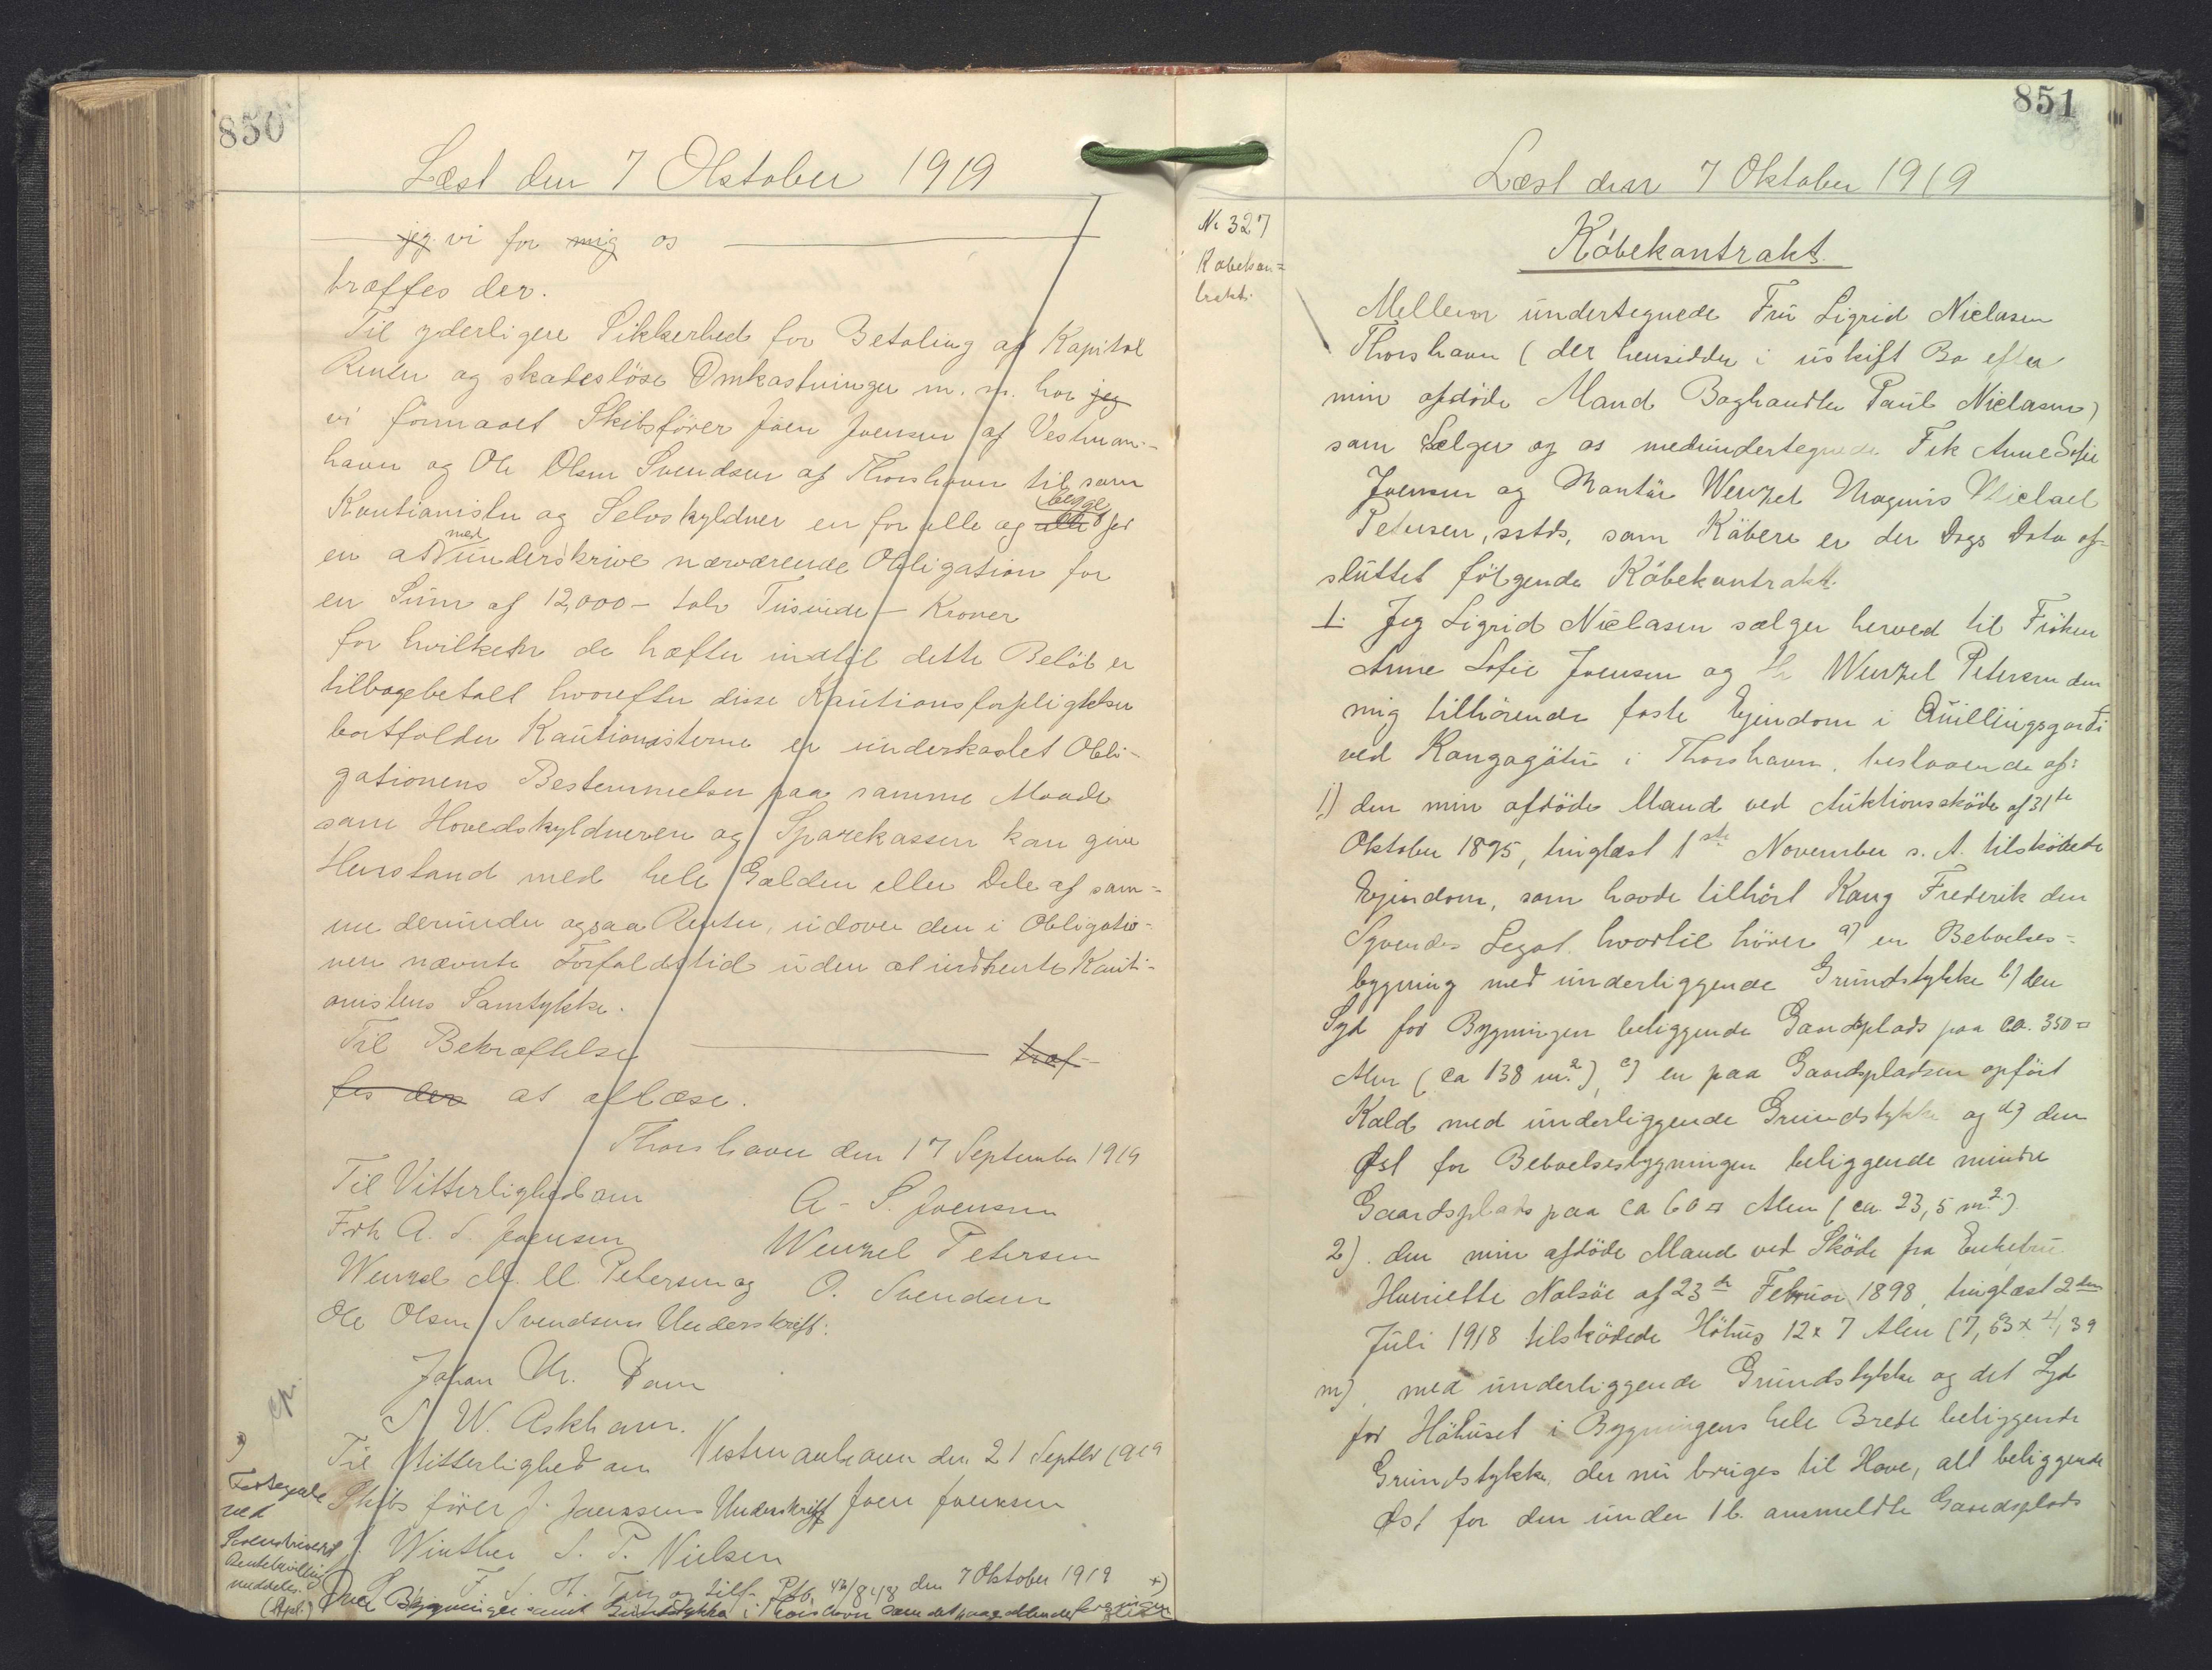 850
Læst den 7 Oktober 1919
jeg vi for mig os
træffes der.
Til yderligere Sikkerhed for Betaling af Kapital
Renter og skadesløse Omkostninger m. m. har jeg
vi formaaet Skibsfører Joen Joensen af Vestman-
havn og Ole Olsen Svendsen af Thorshavn til som
Kautionister og Selvskyldner en for alle og alle begge for
en at med underskrive nærværende Obligation for
en Sum af 12,000 - tolv Tusinde - Kroner
for hvilken de hæfter indtil dette Beløb er
tilbagebetalt hvorefter disse Kautionsforpligtelser
bortfalder Kautionisterne er underkastet Obli-
gationens Bestemmelser paa samme Maade
som Hovedskyldneren og Sparekassen kan give
Henstand med hele Gælden eller Dele af sam-
me derunder ogsaa Renter, udover den i Obligatio-
nen nævnte Forfaldstid uden at indhente Kauti-
onistens Samtykke.
Til Bekræftelse træf-
fes der at aflæse.
Thorshavn den 17 September 1919
Til Vitterlighed om A. S. Joensen
Frk A. S. Joensen Wenzel Petersen
Wenzel M. M. Petersen og O. Svendsen
Ole Olsen Svendsens Underskrift:
Johan M. Dam
S. W. Askham.
Til Vitterlighed om Vestmanhavn den 21 Septbr 1919
Skibsfører J. Joensens Underskrift Joen Joensen
J. Winther S. P. Nielsen
F. S. T. Ting og tilf. Ptb. 42/848 den 7 Oktober 1919 +)
Bygninger samt Grundstykke i Thorshavn
ved
meddeles.
851
Læst den 7 Oktober 1919
No 327
Købekon=
trakt.
Købekontrakt.
Mellem undertegnede Fru Sigrid Niclasen
Thorshavn (der hensidder i uskift Bo efter
min afdøde Mand Boghandler Paul Niclasen)
som Sælger og os medundertegnede Frk Anne Sofie
Joensen og Montør Wenzel Magnus Michael
Petersen, sstds, som Købere er der Dags Dato af-
sluttet følgende Købekontrakt.
1. Jeg Sigrid Niclasen sælger herved til Frøken
Anne Sofie Joensen og Hr Wenzel Petersen den
mig tilhørende faste Ejendom i Quillingsgardi
ved Kongagøtu i Thorshavn, bestaaende af:
1) den min afdøde Mand ved Auktionsskøde af 31te
Oktober 1895, tinglæst 1ste November s. A. tilskødede
Ejendom, som havde tilhørt Kong Frederik den
Syvendes Legat hvortil hører a) en Beboelses=
bygning med underliggende Grundstykke b) den
Syd for Bygningen beliggende Gaardsplads paa ca. 350 □
Alen (ca 138 m.2), c) en paa Gaardspladsen opført
Kald med underliggende Grundstykke og d) den
Øst for Beboelsesbygningen beliggende mindre
Gaardsplads paa ca 60 □ Alen (ca 23,5 m2)
2). den min afdøde Mand ved Skøde fra Enkefru
Henriette Nolsøe af 23de Februar 1898, tinglæst 2den
Juli 1918 tilskødede Høhus 12 x 7 Alen (7,53 x 4,39
m), med underliggende Grundstykke og det Syd
for Høhuset i Bygningens hele Brede beliggende
Grundstykke, der nu bruges til Have, alt beliggende
Øst for den under 1 b. anmeldte Gaardsplads